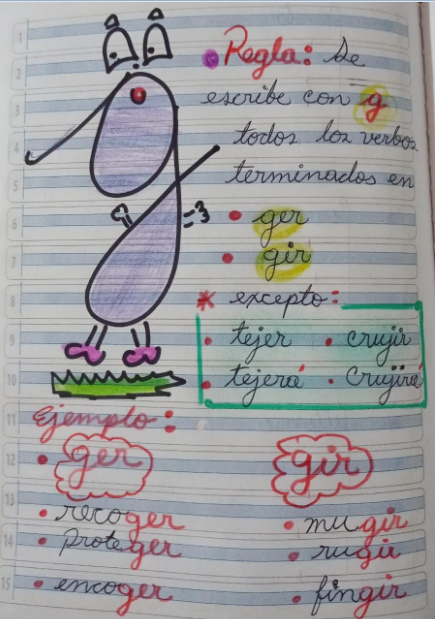 Regla: Se
escribe con g
todos los verbos
terminados en
• ger
• gir
* excepto:
• tejer • crujir
• tejerá • Crujirá
Ejemplo:
• ger gir
• recoger • mugir
• proteger • rugir
• encoger • fingir
1
2
3
4
5
6
7
8
9
10
11
12
13
14
15